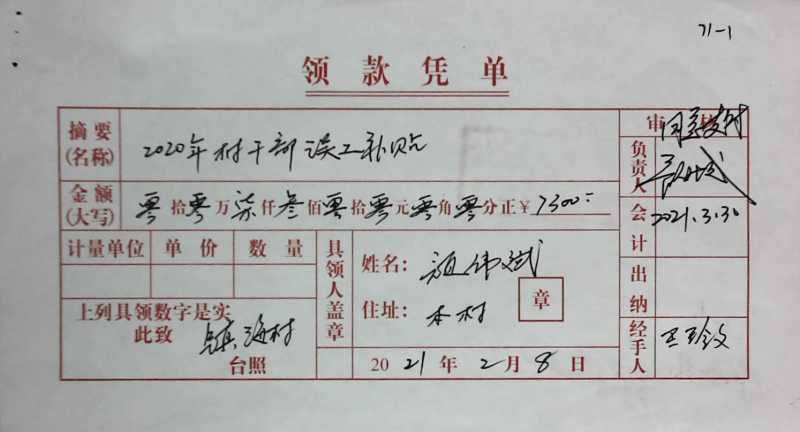 71-1
领款凭单
摘要(名称) 2020年村干部误工补贴
金额(大写) 零拾零万柒仟叁佰零拾零元零角零分正¥7300:
计量单位 单价 数量
具领人盖章
姓名: 伟斌
住址: 本村
章
上列具领数字是实
此致 镇海村
台照
2021年2月8日
审
同意支付
负责人
2021.3.30
会计
出纳
经手人 王